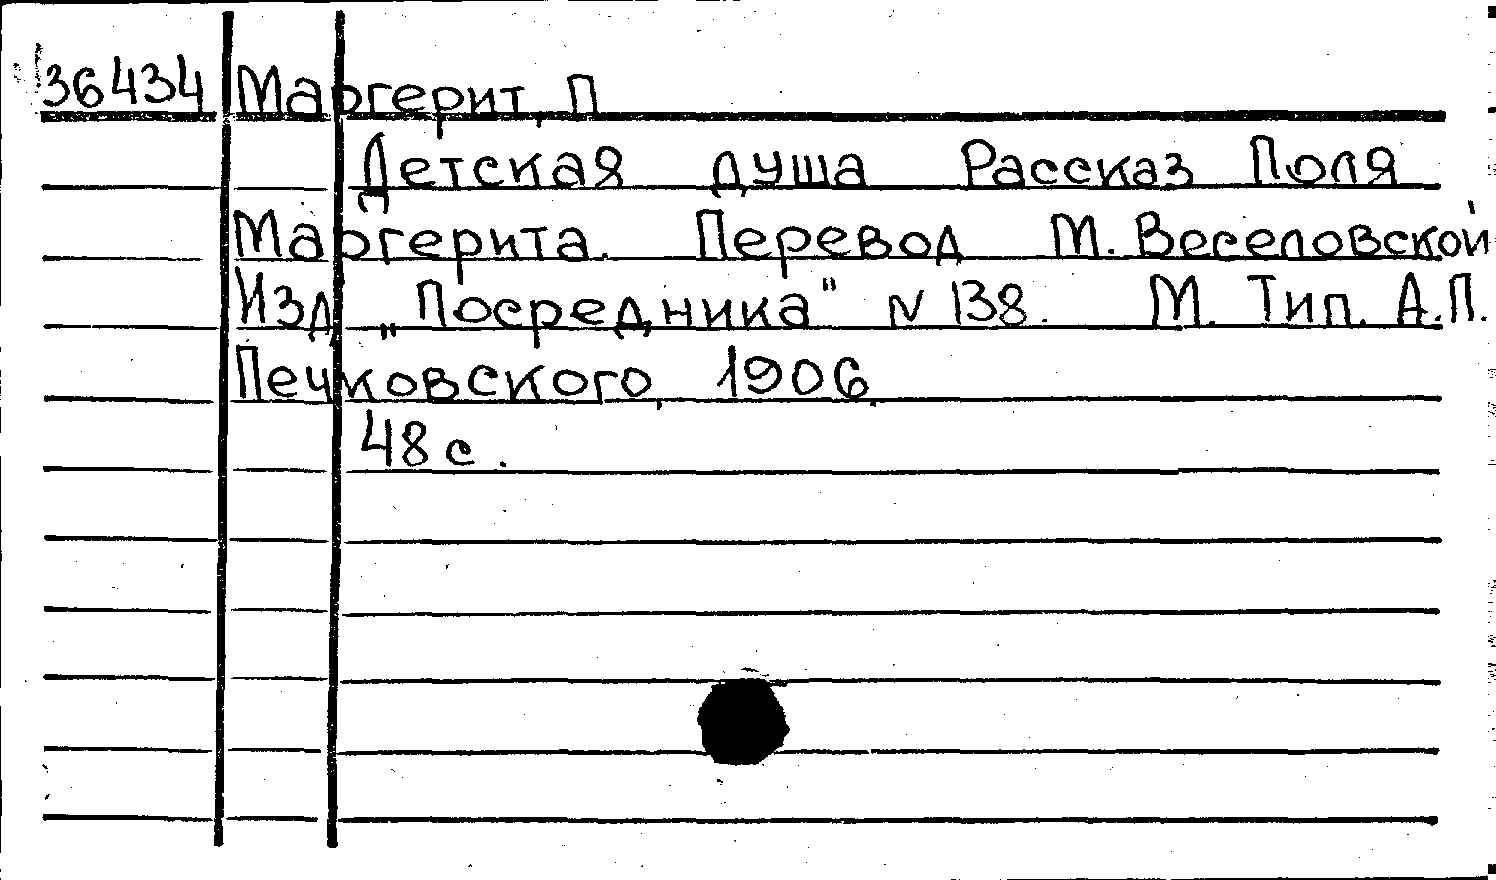 36434 Маргерит, П
Детская душа Рассказ Поля
Маргерита. Перевод М. Веселовской
Изд „Посредника" N 138. М. Тип. А.П.
Печковского, 1906.
48 с.